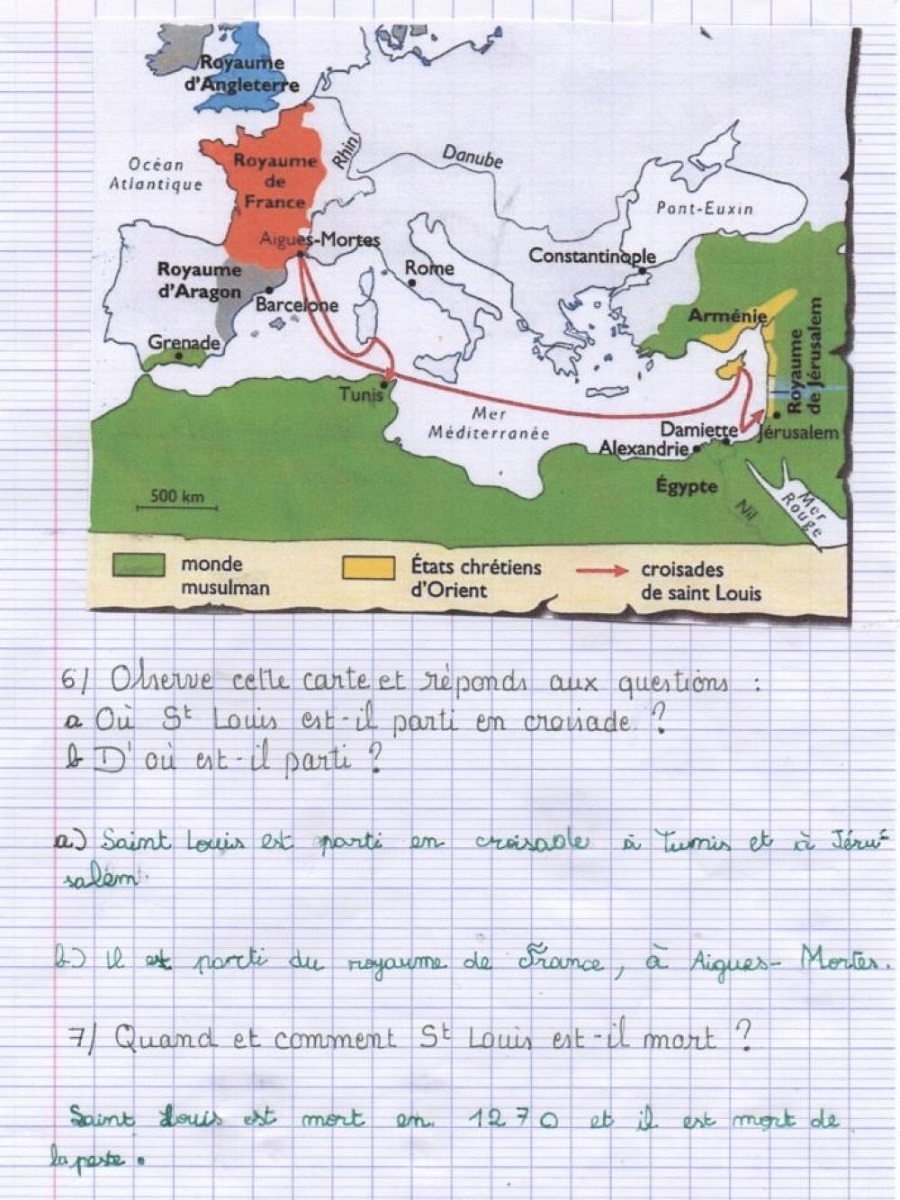 Royaume
d'Angleterre
Océan
Atlantique
Royaume
de
France
Rhin
Danube
Pont-Euxin
Aigues-Mortes
Constantinople
Royaume
d'Aragon
Rome
Barcelone
Arménie
Royaume
de Jérusalem
Grenade
Tunis
Mer
Méditerranée
Damiette
Jérusalem
Alexandrie
Égypte
Nil
Mer
Rouge
500 km
monde
musulman
États chrétiens
d'Orient
croisades
de saint Louis
6/ Observe cette carte et réponds aux questions :
a Où St Louis est-il parti en croisade ?
b D'où est-il parti ?
a) Saint Louis est parti en croisade à Tunis et à Jéru-
salem.
b) il est parti du royaume de France, à Aigues-Mortes.
7/ Quand et comment St Louis est-il mort ?
Saint Louis est mort en 1270 et il est mort de
la peste.